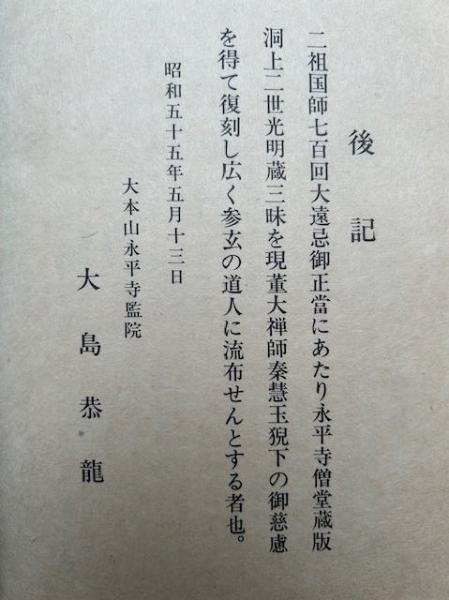 後記
二祖国師七百回大遠忌御正當にあたり永平寺僧堂蔵版
洞上二世光明蔵三昧を現董大禅師秦慧玉猊下の御慈慮
を得て復刻し広く参玄の道人に流布せんとする者也。
昭和五十五年五月十三日
大本山永平寺監院
大島恭龍